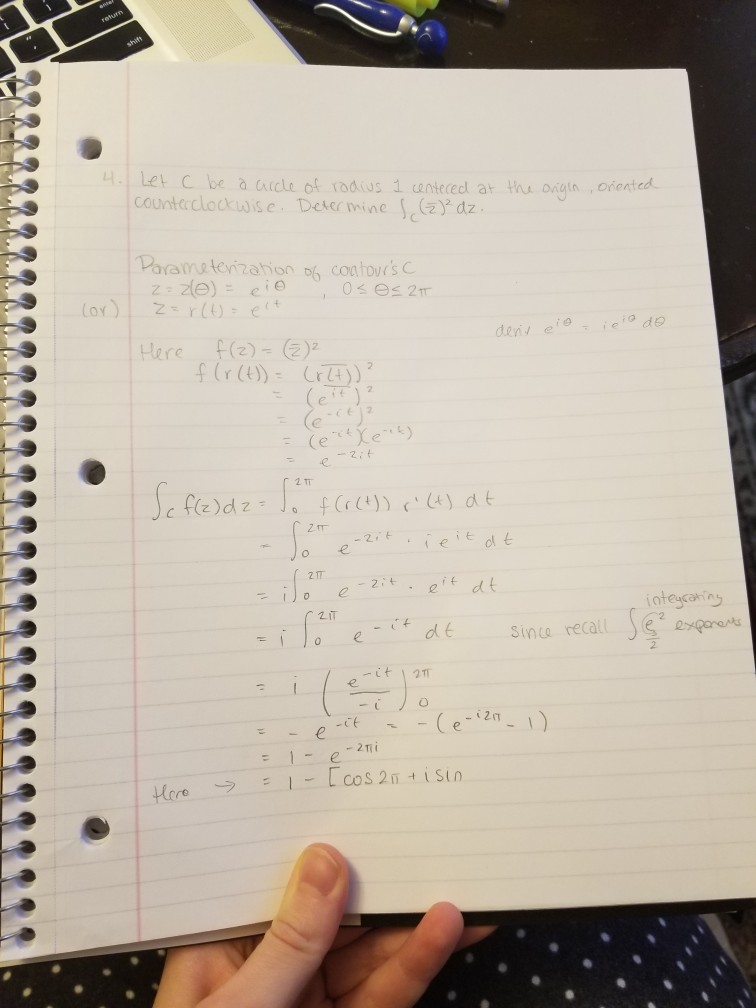 enter
return
shift
4. Let C be a circle of radius 1 centered at the origin, oriented
counterclockwise. Determine ∫_C (z̄)² dz.
Parameterization of contour's C
z = z(θ) = e^{iθ} , 0 ≤ θ ≤ 2π
(or) z = r(t) = e^{it}
deriv e^{iθ} = ie^{iθ} dθ
Here f(z) = (z̄)²
f(r(t)) = (\overline{r(t)})²
= (\overline{e^{it}})²
= (e^{-it})²
= (e^{-it})(e^{-it})
= e^{-2it}
∫_C f(z)dz = ∫_0^{2π} f(r(t)) r'(t) dt
= ∫_0^{2π} e^{-2it} · ie^{it} dt
= i∫_0^{2π} e^{-2it} · e^{it} dt
= i ∫_0^{2π} e^{-it} dt since recall integrating exponents
= i (e^{-it}/-i)_0^{2π}
= -e^{-it} = -(e^{-i2π} - 1)
= 1 - e^{-2πi}
Here → = 1 - [cos2π + i sin